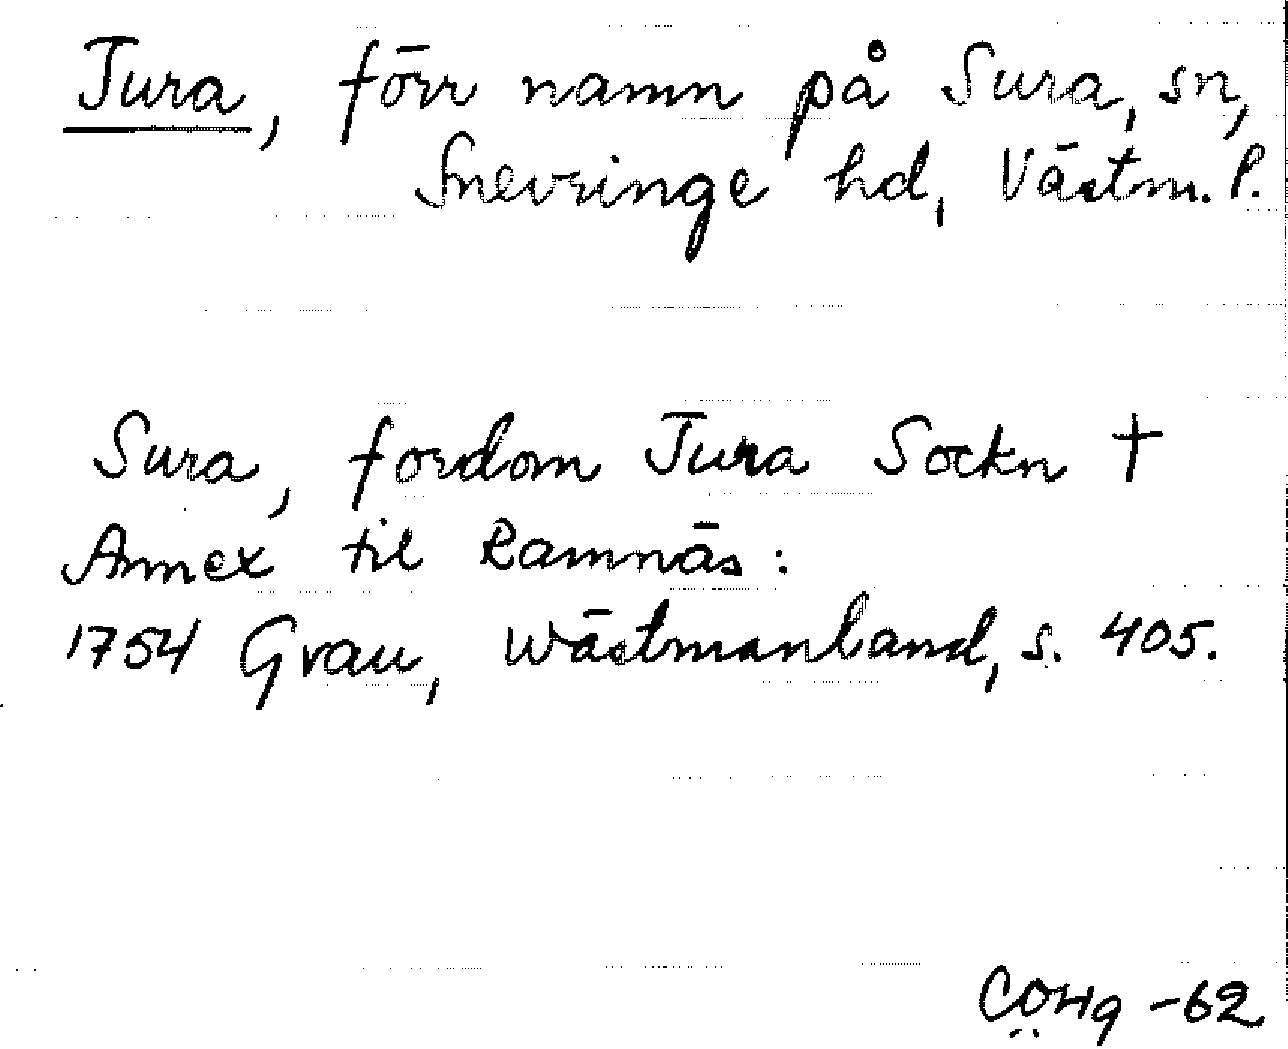 Jura, förr namn på Sura, sn,
Snevringe hd, Västm. l.
Sura, fordom Jura Sockn †
Annex til Ramnäs:
1754 Grau, Wästmanland, s. 405.
-62